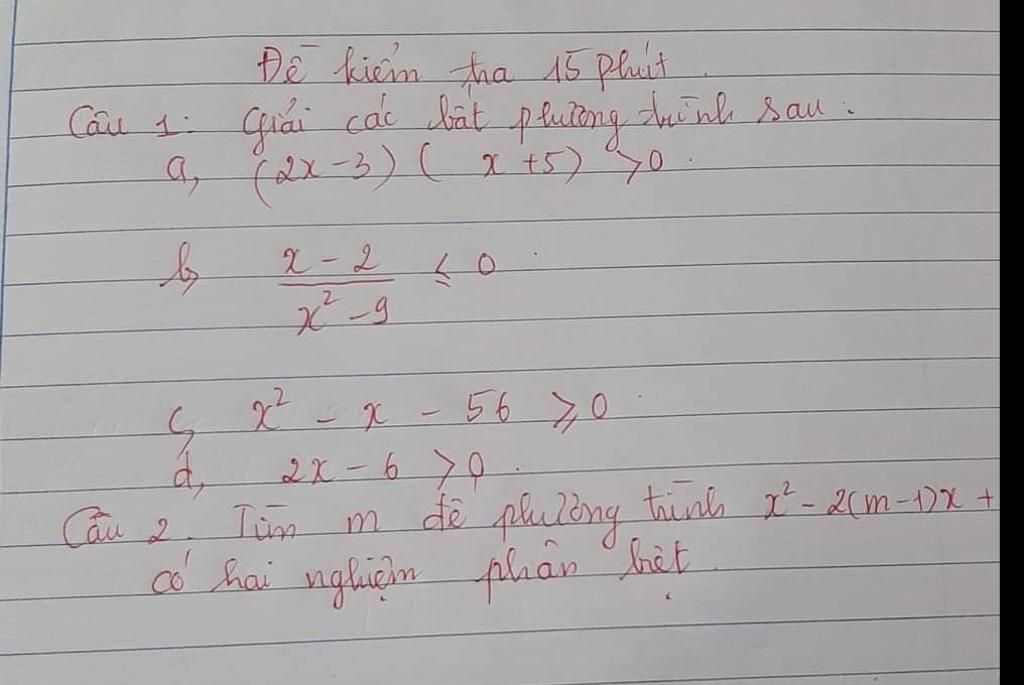 Đề kiểm tra 15 phút.
Câu 1: Giải các bất phương trình sau:
a, (2x-3)( x+5) >0.
b, \frac{x-2}{x^2-9} ≤ 0.
c, x² - x - 56 ≥ 0.
d, 2x - 6 > 0.
Câu 2. Tìm m để phương trình x² - 2(m-1)x +
có hai nghiệm phân biệt.